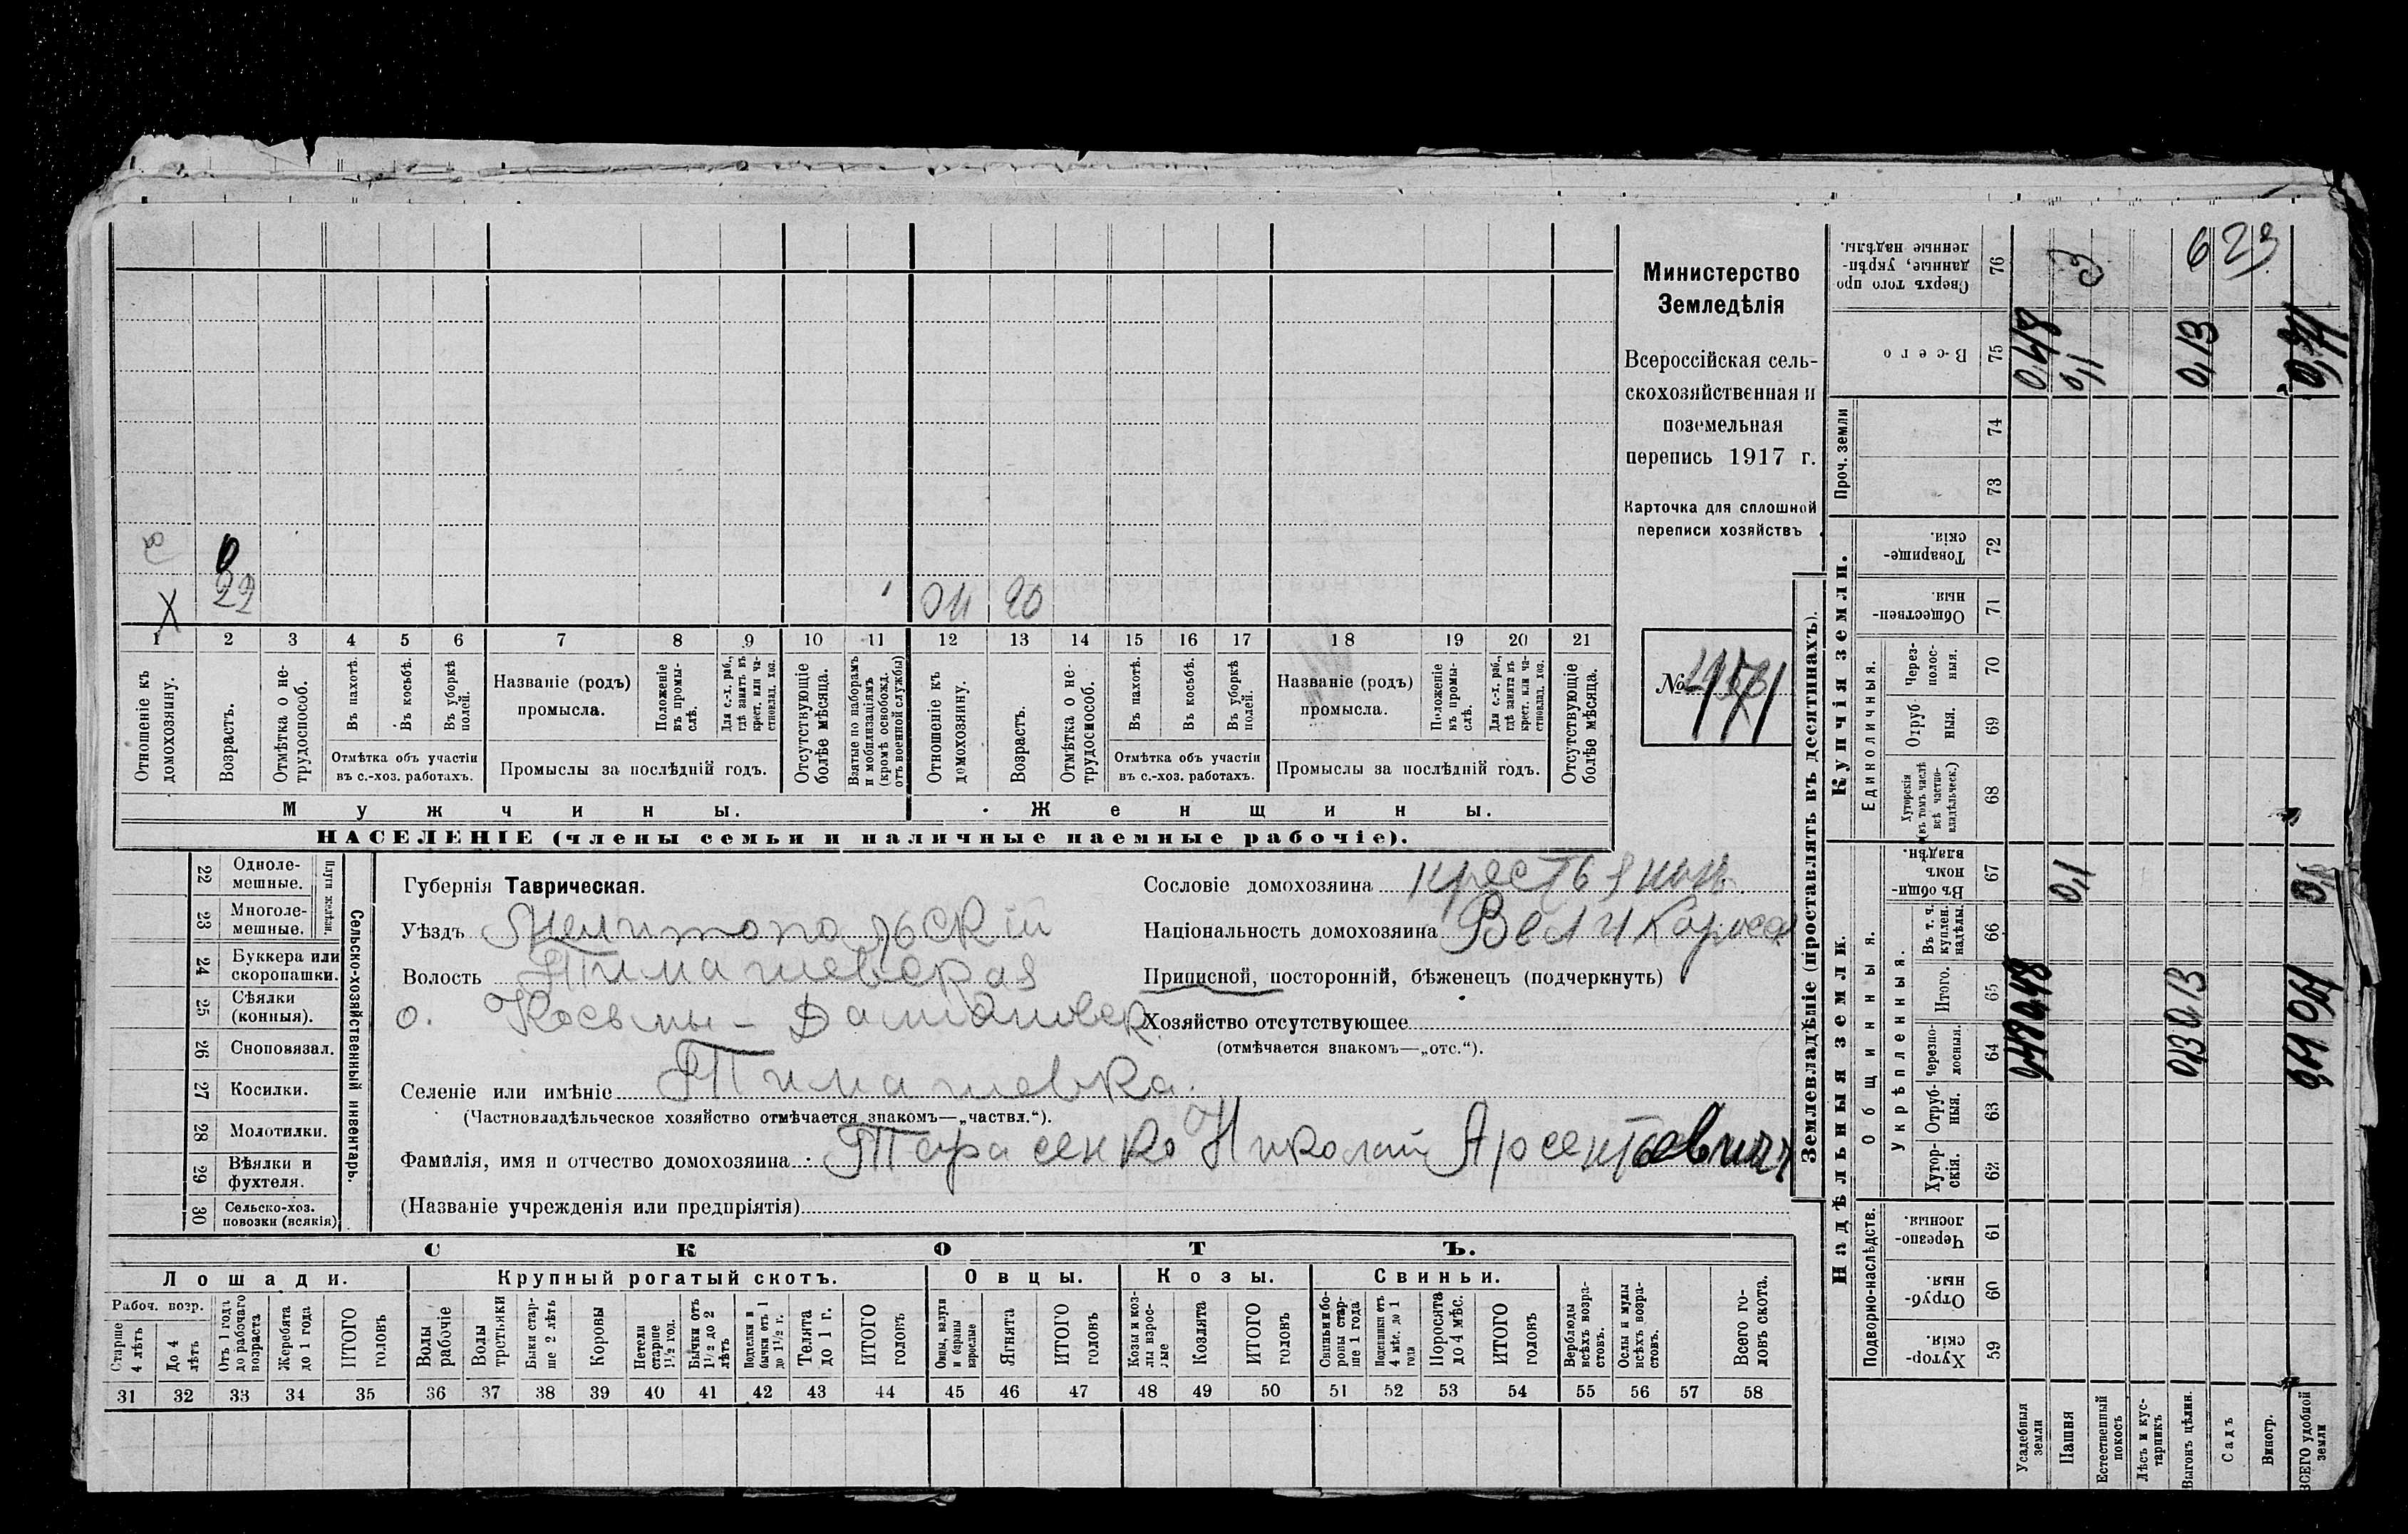 Министерство
Земледѣлія
Всероссійская сель-
скохозяйственная и
поземельная
перепись 1917 г.
Карточка для сплошной
переписи хозяйствъ
№
22
20
1 2 3 4 5 6 7 8 9 10 11 12 13 14 15 16 17 18 19 20 21
Отношеніе къ домохозяину.
Возрастъ.
Отмѣтка о не-трудоспособ.
Въ пахотѣ.
Въ косьбѣ.
Въ уборкѣ полей.
Отмѣтка объ участіи
въ с.-хоз. работахъ.
Названіе (родъ)
промысла.
Положеніе въ промы-слѣ.
Для с.-х. раб., гдѣ занятъ въ крест. или ча-стновлад. хоз.
Промыслы за послѣдній годъ.
Отсутствующіе болѣе мѣсяца.
Взятые по наборамъ и мобилизаціямъ (кромѣ освобожд. отъ военной службы)
Отношеніе къ домохозяину.
Возрастъ.
Отмѣтка о не-трудоспособ.
Въ пахотѣ.
Въ косьбѣ.
Въ уборкѣ полей.
Отмѣтка объ участіи
въ с.-хоз. работахъ.
Названіе (родъ)
промысла.
Положеніе въ промы-слѣ.
Для с.-х. раб., гдѣ занята въ крест. или ча-стновлад. хоз.
Промыслы за послѣдній годъ.
Отсутствующіе болѣе мѣсяца.
Мужчины.
Женщины.
НАСЕЛЕНІЕ (члены семьи и наличные наемные рабочіе).
22 Одноле-мешные.
23 Многоле-мешные.
Плуги желѣзн.
24 Буккера или скоропашки.
25 Сѣялки (конныя).
26 Сноповязал.
27 Косилки.
28 Молотилки.
29 Вѣялки и фухтеля.
30 Сельско-хоз. повозки (всякія)
Сельско-хозяйственный инвентарь.
Губернія Таврическая.
Уѣздъ Мелитопольскій
Волость Тимашевская
о. Косьмы-Даміановск
Селеніе или имѣніе Тимашевка.
(Частновладѣльческое хозяйство отмѣчается знакомъ—„частвл.“).
Фамилія, имя и отчество домохозяина Тарасенко Николай Арсентьевичъ
(Названіе учрежденія или предпріятія)
Сословіе домохозяина крестьянинъ
Національность домохозяина Великороса
Приписной, посторонній, бѣженецъ (подчеркнуть)
Хозяйство отсутствующее
(отмѣчается знакомъ—„отс.“).
СКОТЪ.
Лошади. Крупный рогатый скотъ. Овцы. Козы. Свиньи.
Рабоч. возр.
Старше 4 лѣтъ
До 4 лѣтъ
Отъ 1 года до рабочаго возраста
Жеребята до 1 года
ИТОГО головъ
Волы рабочіе
Волы третьяки
Быки стар-ше 2 лѣтъ
Коровы
Нетели старше 1½ год.
Бычки отъ 1½ до 2 лѣтъ
Подтелки и бычки отъ 1 до 1½ г.
Телята до 1 г.
ИТОГО головъ
Овцы, валухи и бараны взрослые
Ягнята
ИТОГО головъ
Козы и коз-лы взрос-лые
Козлята
ИТОГО головъ
Свиньи и бо-ровы стар-ше 1 года
Подсвинки отъ 4 мѣс. до 1 года
Поросята до 4 мѣс.
ИТОГО головъ
Верблюды всѣхъ возра-стовъ.
Ослы и мулы всѣхъ возра-стовъ.
Всего го-ловъ скота.
31 32 33 34 35 36 37 38 39 40 41 42 43 44 45 46 47 48 49 50 51 52 53 54 55 56 57 58
Землевладѣніе (проставлять въ десятинахъ).
Надѣльныя земли.
Купчія земли.
Проч. земли
Подворно-наслѣдств.
Общинныя.
Укрѣпленныя.
Единоличныя.
Хутор-скія. 59
Отруб-ныя. 60
Черезпо-лосныя. 61
Хутор-скія. 62
Отруб-ныя. 63
Черезпо-лосныя. 64
Итого. 65
Въ т. ч. куплен. надѣлы. 66
Въ общи-номъ владѣн. 67
Хуторскія (въ томъ числѣ всѣ частно-владѣльческ.) 68
Отруб-ныя. 69
Через-полос-ныя. 70
Обществен-ныя. 71
Товарище-скія. 72
73
74
Всего 75
Сверхъ того про-данные, укрѣп-ленные надѣлы. 76
Усадебныя земли
Пашня
Естественный покосъ
Лѣсъ и кус-тарникъ
Выгонъ цѣлин.
Садъ
Виногр.
ВСЕГО удобной земли
623
0,48
0,1
0,13
0,1
0,48
0,13